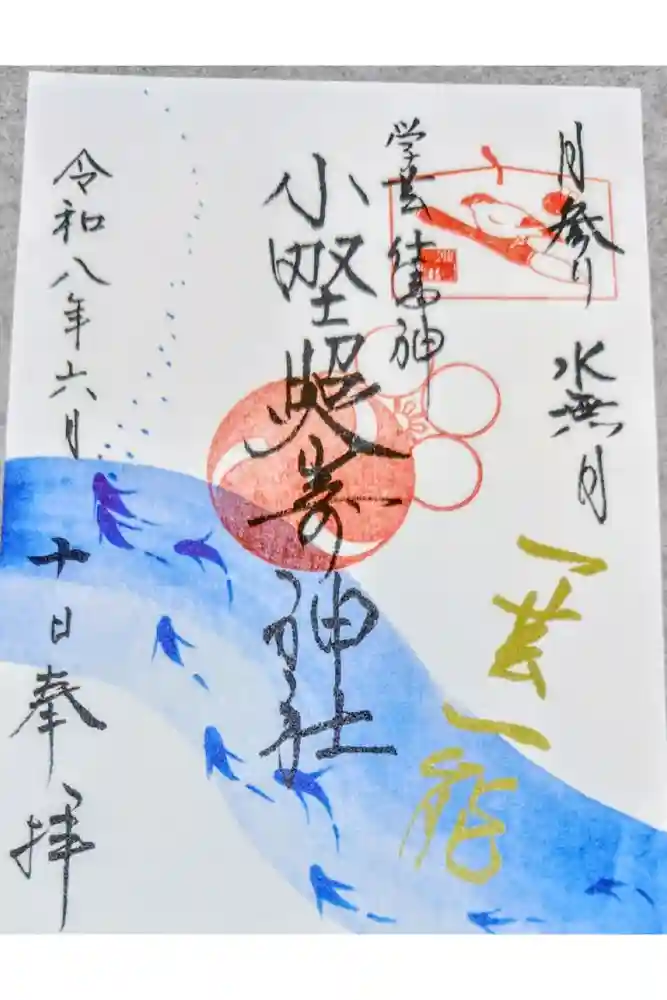 月参り 水無月
一芸一能
学芸 仕事神
小野照崎神社
令和八年六月十日奉拝